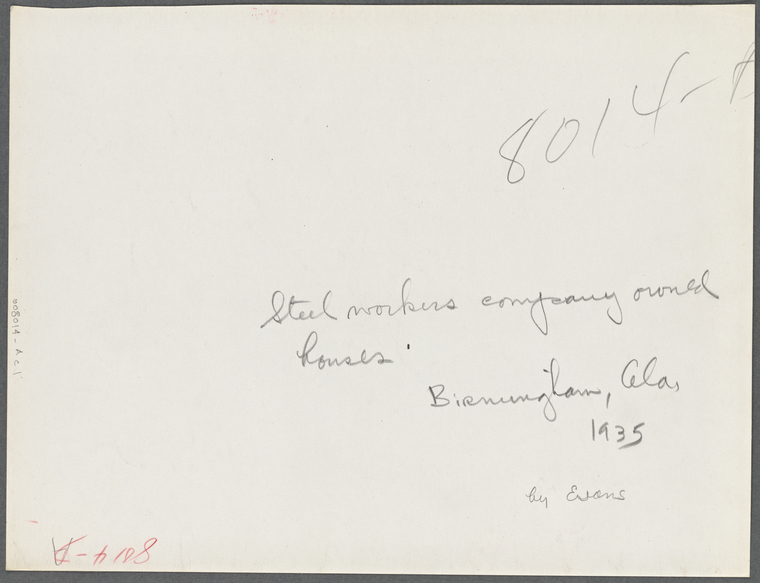 8014-A
Steel workers company owned
houses
Birmingham, Ala,
1935
by Evans
008014-A c1
8014-A